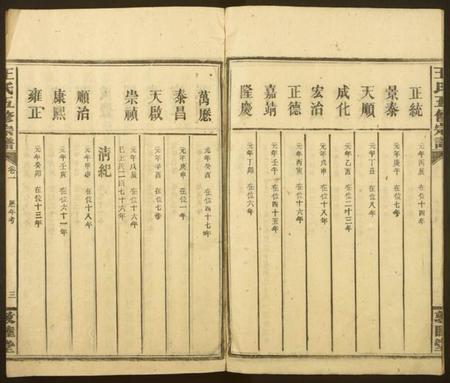 王氏五修宗譜
正統 元年丙辰 在位十四年
景泰 元年庚午 在位七年
天順 元年丁丑 在位八年
成化 元年乙酉 在位二十三年
宏治 元年戊申 在位十八年
正德 元年丙寅 在位十六年
嘉靖 元年壬午 在位四十五年
隆慶 元年丁卯 在位六年
敦睦堂
萬歷 元年癸酉 在位四十七年
泰昌 元年庚申 在位一年
天啟 元年辛酉 在位七年
崇禎 元年戊辰 在位十六年
已上共二百七十六年
清紀
順治 元年甲申 在位十八年
康熙 元年壬寅 在位六十一年
雍正 元年癸卯 在位十三年
王氏五修宗譜 卷一 歷年考 三 敦睦堂